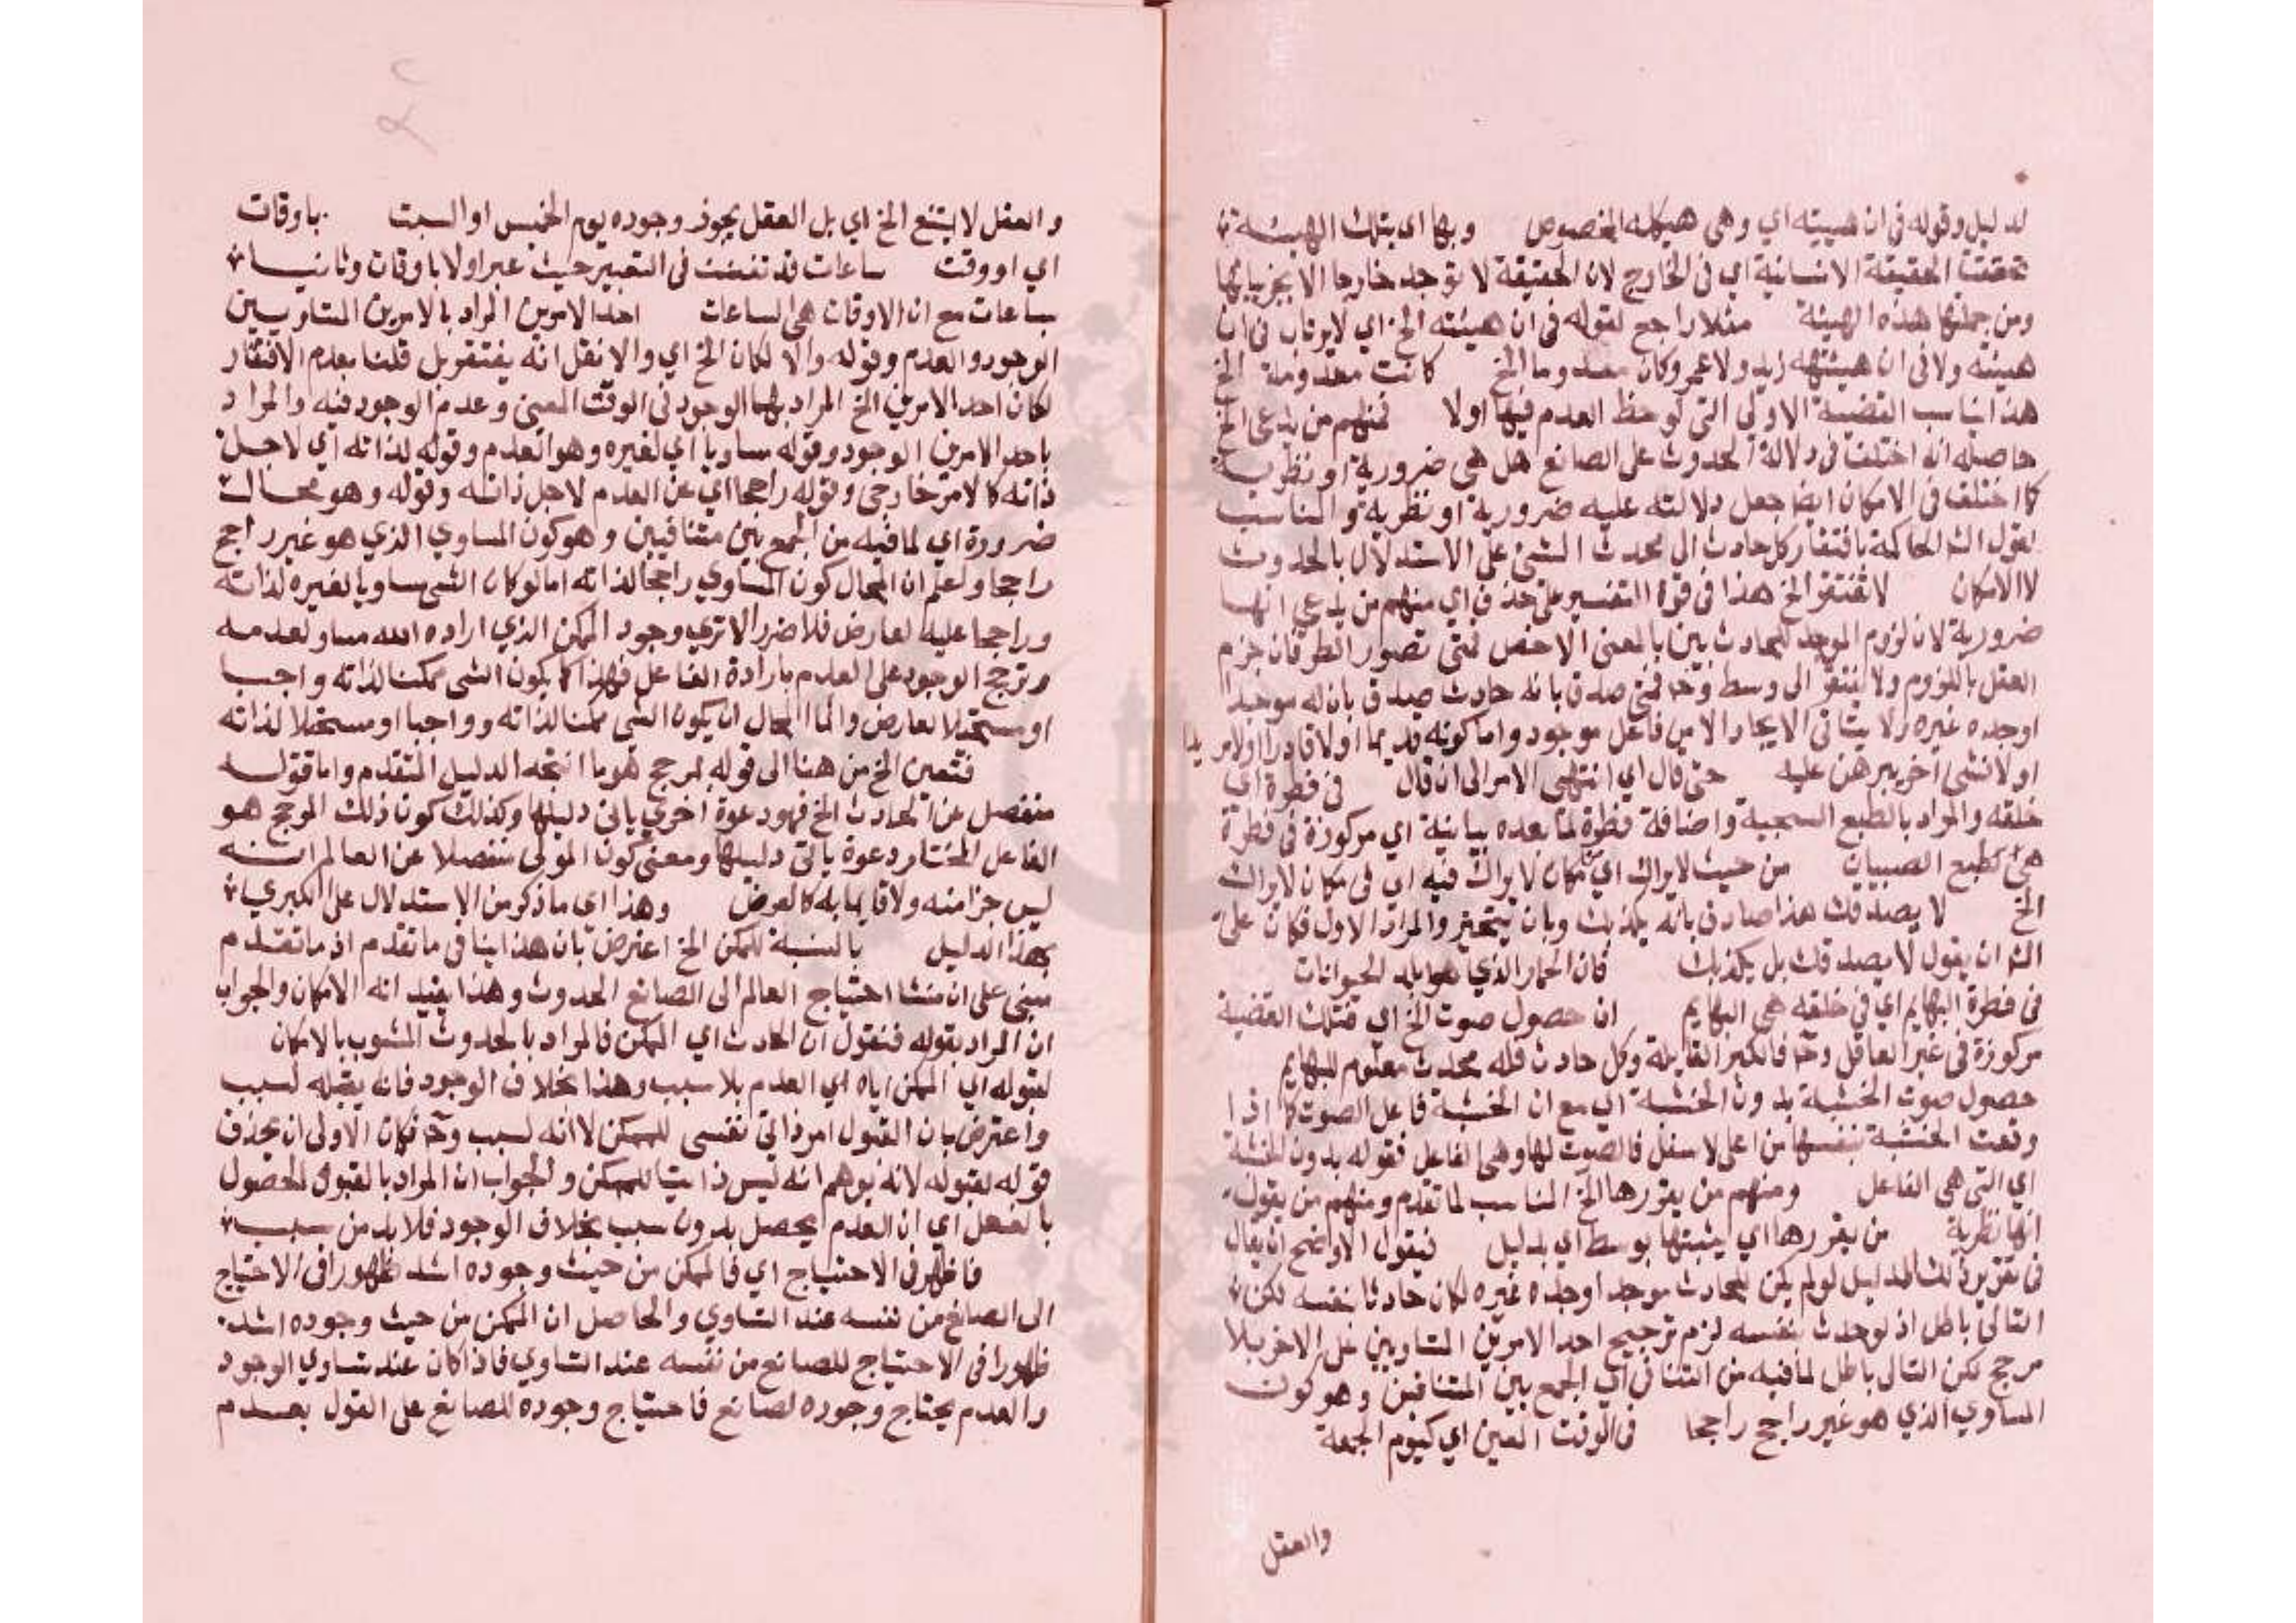 لدليل وقوله في ان هيئته اي وهي هيكله المخصوص وبها اي بتلك الهيئة
تحققت الحقيقة الانسانية اي في الخارج لان الحقيقة لا توجد خارجا الا بجزئياتها
ومن جملتها هذه الهيئة مثلا راجع لقوله في ان هيئته الخ اي لا يرتاب في ان
هيئته ولا في ان هيئتهه زيد ولا عمرو كان معدوما الخ كانت معدومة الخ
هذا يناسب القضية الاولى التي لوحظ العدم فيها اولا فمنهم من يدعي الخ
حاصله انه اختلف في دلالة الحدوث على الصانع هل هي ضرورية او نظرية
كما اختلف في الامكان ايضا جعل دلالته عليه ضرورية او نظرية والمناسب
لقول الش الحاكمة بافتقار كل حادث الى محدث الشئ على الاستدلال بالحدوث
لا الامكان لا تفتقر الخ هذا في قوة التفسير على حذف اي منهم من يدعي انها
ضرورية لان لزوم الموجد للحادث بين بالمعنى الاخص فمتى تصور الطرفان جزم
العقل باللزوم ولا يفتقر الى وسط وح فمتى صدق بانه حادث صدق بان له موجدا
اوجده غيره ولا يتاتى الايجاد الا من فاعل موجود واما كونه قديما اولا قادرا اولا مريدا
اولا فشئ اخر يبرهن عليه حتى قال اي انتهى الامر الى ان قال في فطرة اي
خلقه والمراد بالطبع السجية واضافة فطرة لما بعده بيانية اي مركوزة في فطرة
هي طبع الصبيان من حيث لا يراك اي مكان لا يراك فيه اي في مكان لا يراك
الخ لا يصدقك هذا صادق بانه يكذبك وبان يتحير والمراد الاول فكان على
الش ان يقول لا يصدقك بل يكذبك فان الحمار الذي هو ابلد الحيوانات
في فطرة البهايم اي في خلقه هي البهايم ان حصول صوت الخ اي فتلك القضية
مركوزة في غير العاقل وح فالكبرى القايلة وكل حادث فله محدث معلوم للبهايم
حصول صوت الخشبة بدون الخشبة اي مع ان الخشبة فاعل الصوت كما اذا
وقعت الخشبة بنفسها من اعلى لاسفل فالصوت لها وهي الفاعل فقوله بدون الخشبة
اي التي هي الفاعل ومنهم من يقررها الخ المناسب لما تقدم ومنهم من يقول
انها نظرية من يقررها اي يثبتها بوسط اي بدليل فيقول الاوضح ان يقال
في تقرير ذلك الدليل لو لم يكن للحادث موجد اوجده غيره لكان حادثا بنفسه لكن
التالي باطل اذ لو حدث بنفسه لزم ترجيح احد الامرين المتساويين على الاخر بلا
مرجح لكن التالي باطل لما فيه من التنافي اي الجمع بين المتنافيين وهو كون
المساوي الذي هو غير راجح راجحا في الوقت المعين اي كيوم الجمعة
والعقل
والعقل لا يمتنع الخ اي بل العقل يجوز وجوده يوم الخميس او السبت باوقات
اي او وقت ساعات قد تفنن في التعبير حيث عبر اولا باوقات وثانيا
بساعات مع ان الاوقات هي الساعات احد الامرين المراد بالامرين المتساويين
الوجود والعدم وقوله والا لكان الخ اي والا نقل انه يفتقر بل قلنا بعدم الافتقار
لكان احد الامرين الخ المراد بهما الوجود في الوقت المعين وعدم الوجود فيه والمراد
باحد الامرين الوجود وقوله مساويا اي لغيره وهو العدم وقوله لذاته اي لاجل
ذاته كالامر خارجي وقوله راجحا اي عن العدم لاجل ذاته وقوله وهو محال
ضرورة اي لما فيه من الجمع بين متنافيين وهو كون المساوي الذي هو غير راجح
راجحا واعلم ان المحال كون المساوي راجحا لذاته اما لو كان الشي مساويا لغيره لذاته
وراجحا عليه لعارض فلا ضرر الا تري وجود الممكن الذي اراده الله مساو لعدمه
وترجح الوجود على العدم بارادة الفاعل فهذا كما يكون الشي ممكنا لذاته واجبا
او مستحيلا لعارض وانما المحال ان يكون الشي ممكنا لذاته وواجبا او مستحيلا لذاته
فتعين الخ من هنا الى قوله لمرجح هو ما انتجه الدليل المتقدم واما قوله
منفصل عن الحادث الخ فهو دعوة اخري ياتي دليلها وكذلك كون ذلك المرجح هو
الفاعل المختار دعوة ياتي دليلها ومعنى كون المولى منفصلا عن العالم انه
ليس جزا منه ولا قايما به كالعرض وهذا اي ما ذكر من الاستدلال على الكبري
بهذا الدليل بالنسبة للممكن الخ اعترض بان هذا ينافي ما تقدم اذ ما تقدم
مبني على ان منشا احتياج العالم الى الصانع الحدوث وهذا يفيد انه الامكان والجواب
ان المراد بقوله فنقول ان الحادث اي الممكن فالمراد بالحدوث المشوب بالامكان
لقبوله اي الممكن اياه اي العدم بلا سبب وهذا بخلاف الوجود فانه يقبله لسبب
واعترض بان القبول امر ذاتي نفسي للممكن لا انه لسبب وح فكان الاولى ان يحذف
قوله لقبوله لانه يوهم انه ليس ذاتيا للممكن والجواب ان المراد بالقبول الحصول
بالفعل اي ان العدم يحصل بدون سبب بخلاف الوجود فلا بد من سبب
فاظهر في الاحتياج اي فالممكن من حيث وجوده اشد ظهورا في الاحتياج
الى الصانع من نفسه عند التساوي والحاصل ان الممكن من حيث وجوده اشد
ظهورا في الاحتياج للصانع من نفسه عند التساوي فاذا كان عند تساوي الوجود
والعدم يحتاج وجوده لصانع فاحتياج وجوده للصانع على القول بعدم